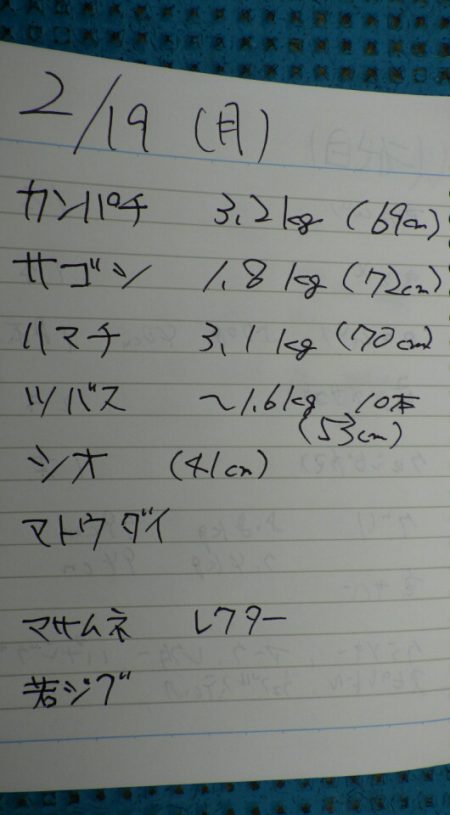 2/19 (月)
カンパチ 3.2kg (69cm)
サゴシ 1.8kg (72cm)
ハマチ 3.1kg (70cm)
ツバス ~1.6kg 10本
(53cm)
シオ (41cm)
マトウダイ
マサムネ レクター
岩ジグ